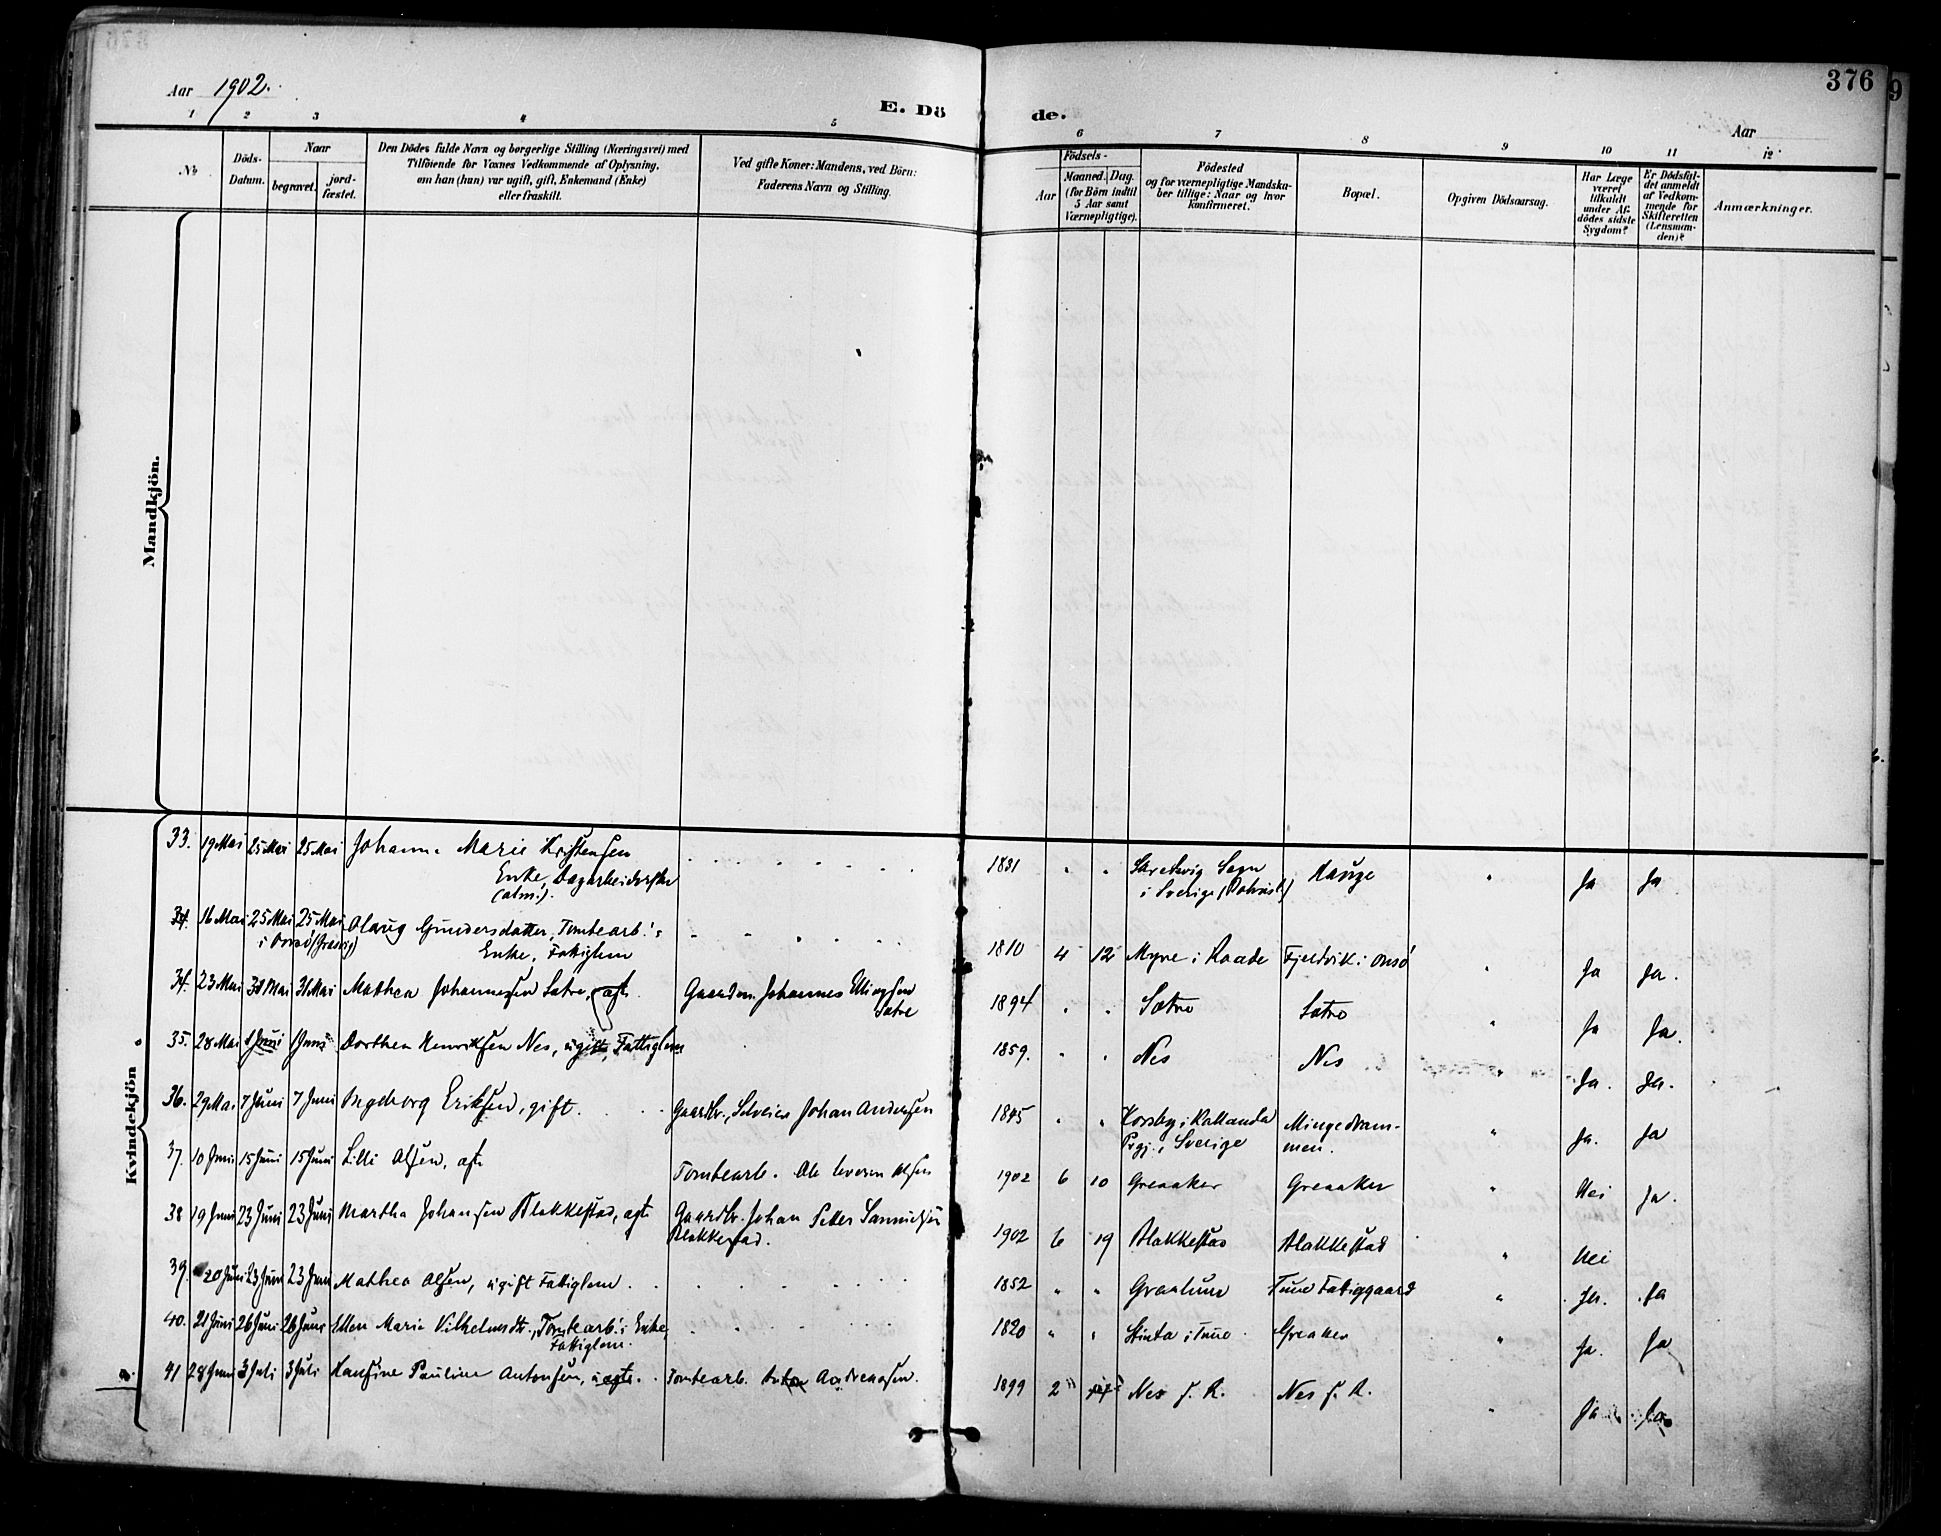 376
Aar 1902.
E. Döde.
Aar
9
1 2 3 4 5 6 7 8 9 10 11 12
No
Döds-Datum.
Naar
begravet. jord-fæstet.
Den Dödes fulde Navn og borgerlige Stilling (Næringsvei) med
Tilföiende for Voxnes Vedkommende af Oplysning,
om han (hun) var ugift, gift, Enkemand (Enke)
eller fraskilt.
Ved gifte Koner: Mandens, ved Börn:
Faderens Navn og Stilling.
Födsels-
Aar
Maaned. Dag.
(for Börn indtil
5 Aar samt
Værnepligtige).
Födested
og for værnepligtige Mandska-
ber tillige: Naar og hvor
konfirmeret.
Bopæl.
Opgiven Dödsaarsag.
Har Læge
været
tilkaldt
under Af-
dödes sidste
Sygdom?
Er Dödsfal-
det anmeldt
af Vedkom-
mende for
Skifteretten
(Lensman-
den)?
Anmærkninger.
Mandkjön.
Kvindekjön
33. 19 Mai 25 Mai 25 Mai Johanne Marie Kristensen 1831 Sverige Hauge " Ja Ja
Enke, Dagarbeiderske
(alm:).
34. 16 Mai 25 Mai 25 Mai Olaug Gundersdatter, Tomtearb.'s 1810 4 12 Myre i Raade Fjeldvik i Onsö " Ja Ja.
i Onsö
Enke, Fattiglem
34. 23 Mai 31 Mai 31 Mai Mathea Johannessen Sætre, ægte Gaardm. Johannes Ellingsen 1894 " " Sætre Sætre " Ja Ja.
Sætre
35. 28 Mai 1 Juni 1 Juni Dorthea Henriksen Nes, ugift, Fattiglem 1859. " " Nes Nes " Ja. Ja.
36. 29 Mai 7 Juni 7 Juni Ingeborg Eriksen, gift. Gaardbr., Selveier Johan Andersen 1845 " " Korsby i Sverige Mingedram-
men. " Ja. Ja
37. 10 Juni 15 Juni 15 Juni Lilli Olsen, ægte Tomtearb. Ole Severin Olsen 1902 6 10 Greaaker Greaaker " Nei Ja.
38 19 Juni 23 Juni 23 Juni Martha Johansen Blakkestad, ægte Gaardbr. Johan Petter 1902 6 19 Blakkestad Blakkestad " Nei
Blakkestad.
39. 20 Juni 23 Juni 23 Juni Mathea Olsen, ugift Fattiglem. 1852 " " Graalum Tune Fattiggaard " Ja. Ja
40. 21 Juni 26 Juni 26 Juni Ellen Marie Vilhelmsdtr., Tomtearb.'s Enke, 1820 " " i Tune Greaker " Ja. Ja
Fattiglem.
41 28 Juni 3 Juli 3 Juli Hansine Pauline Antonsen, uægte. Tomtearb. Anton Andreassen. 1899 2 Nes f. R. Nes f. R. " Ja Ja